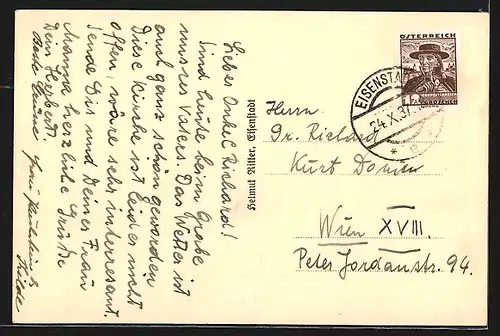 Lieber Onkel Richard!
Sind heute beim Grabe
unseres Vaters. Das Wetter ist
auch ganz schön geworden
Diese Kirche ist leider nicht
offen, wäre sehr interessant.
Sende Dir und Deiner Frau
Mama herzliche Grüße
Dein Herbert.
Beste Grüße
Helmut Ritter, Eisenstadt
ÖSTERREICH
GROSCHEN
EISENSTADT
24.X.37
Herrn
Dr. Richard
Kurt
Wien XVIII.
Peter Jordanstr. 94.